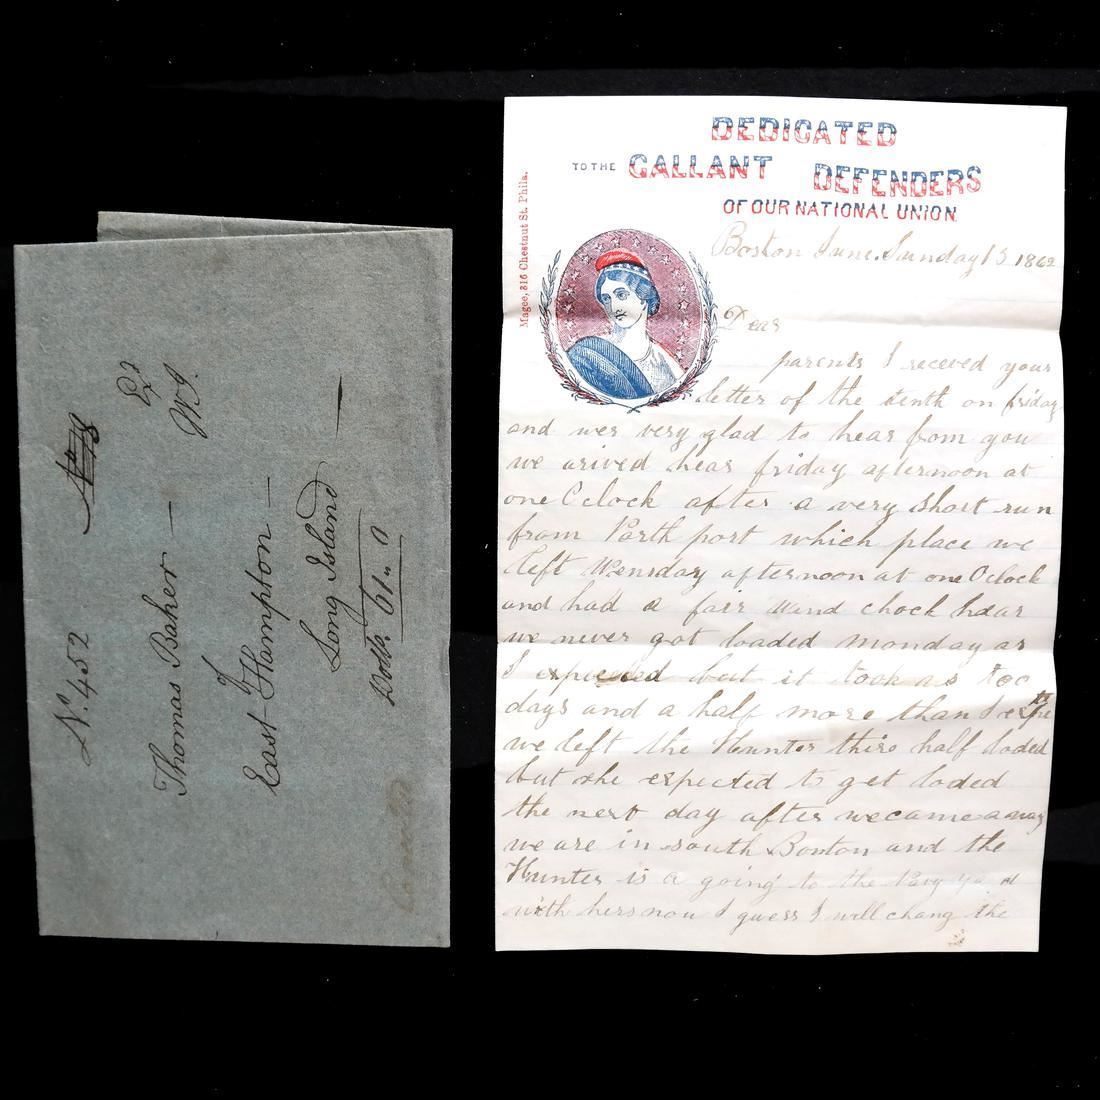 Nº. 452
Thomas Baker —
of
East-Hampton —
Long Island —
Dolls. 61 " 0
DEDICATED
TO THE GALLANT DEFENDERS
OF OUR NATIONAL UNION
Magee, 316 Chestnut St. Phila.
Boston June. Sunday 15 1862
Dear
parents I receved your
letter of the tenth on friday
and wer very glad to hear from you
we arived hear friday afternoon at
one Oclock after a very short run
from Parth port which place we
left Wensday afternoon at one Oclock
and had a fair wand chock hear
we never got loaded monday as
I expected but it took as too
days and a half more than I expe
we left the Hunter thiro half loded
but she expected to get loded
the next day after we came away
we are in south Boston and the
Hunter is a going to the Navy yard
with hers now I guess I will chang the